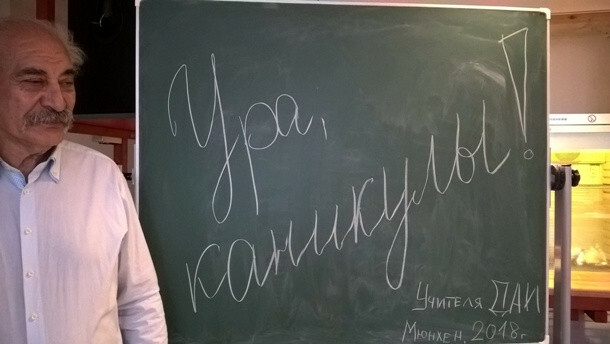 Ура,
каникулы!
Учителя ДАИ
Мюнхен, 2018г